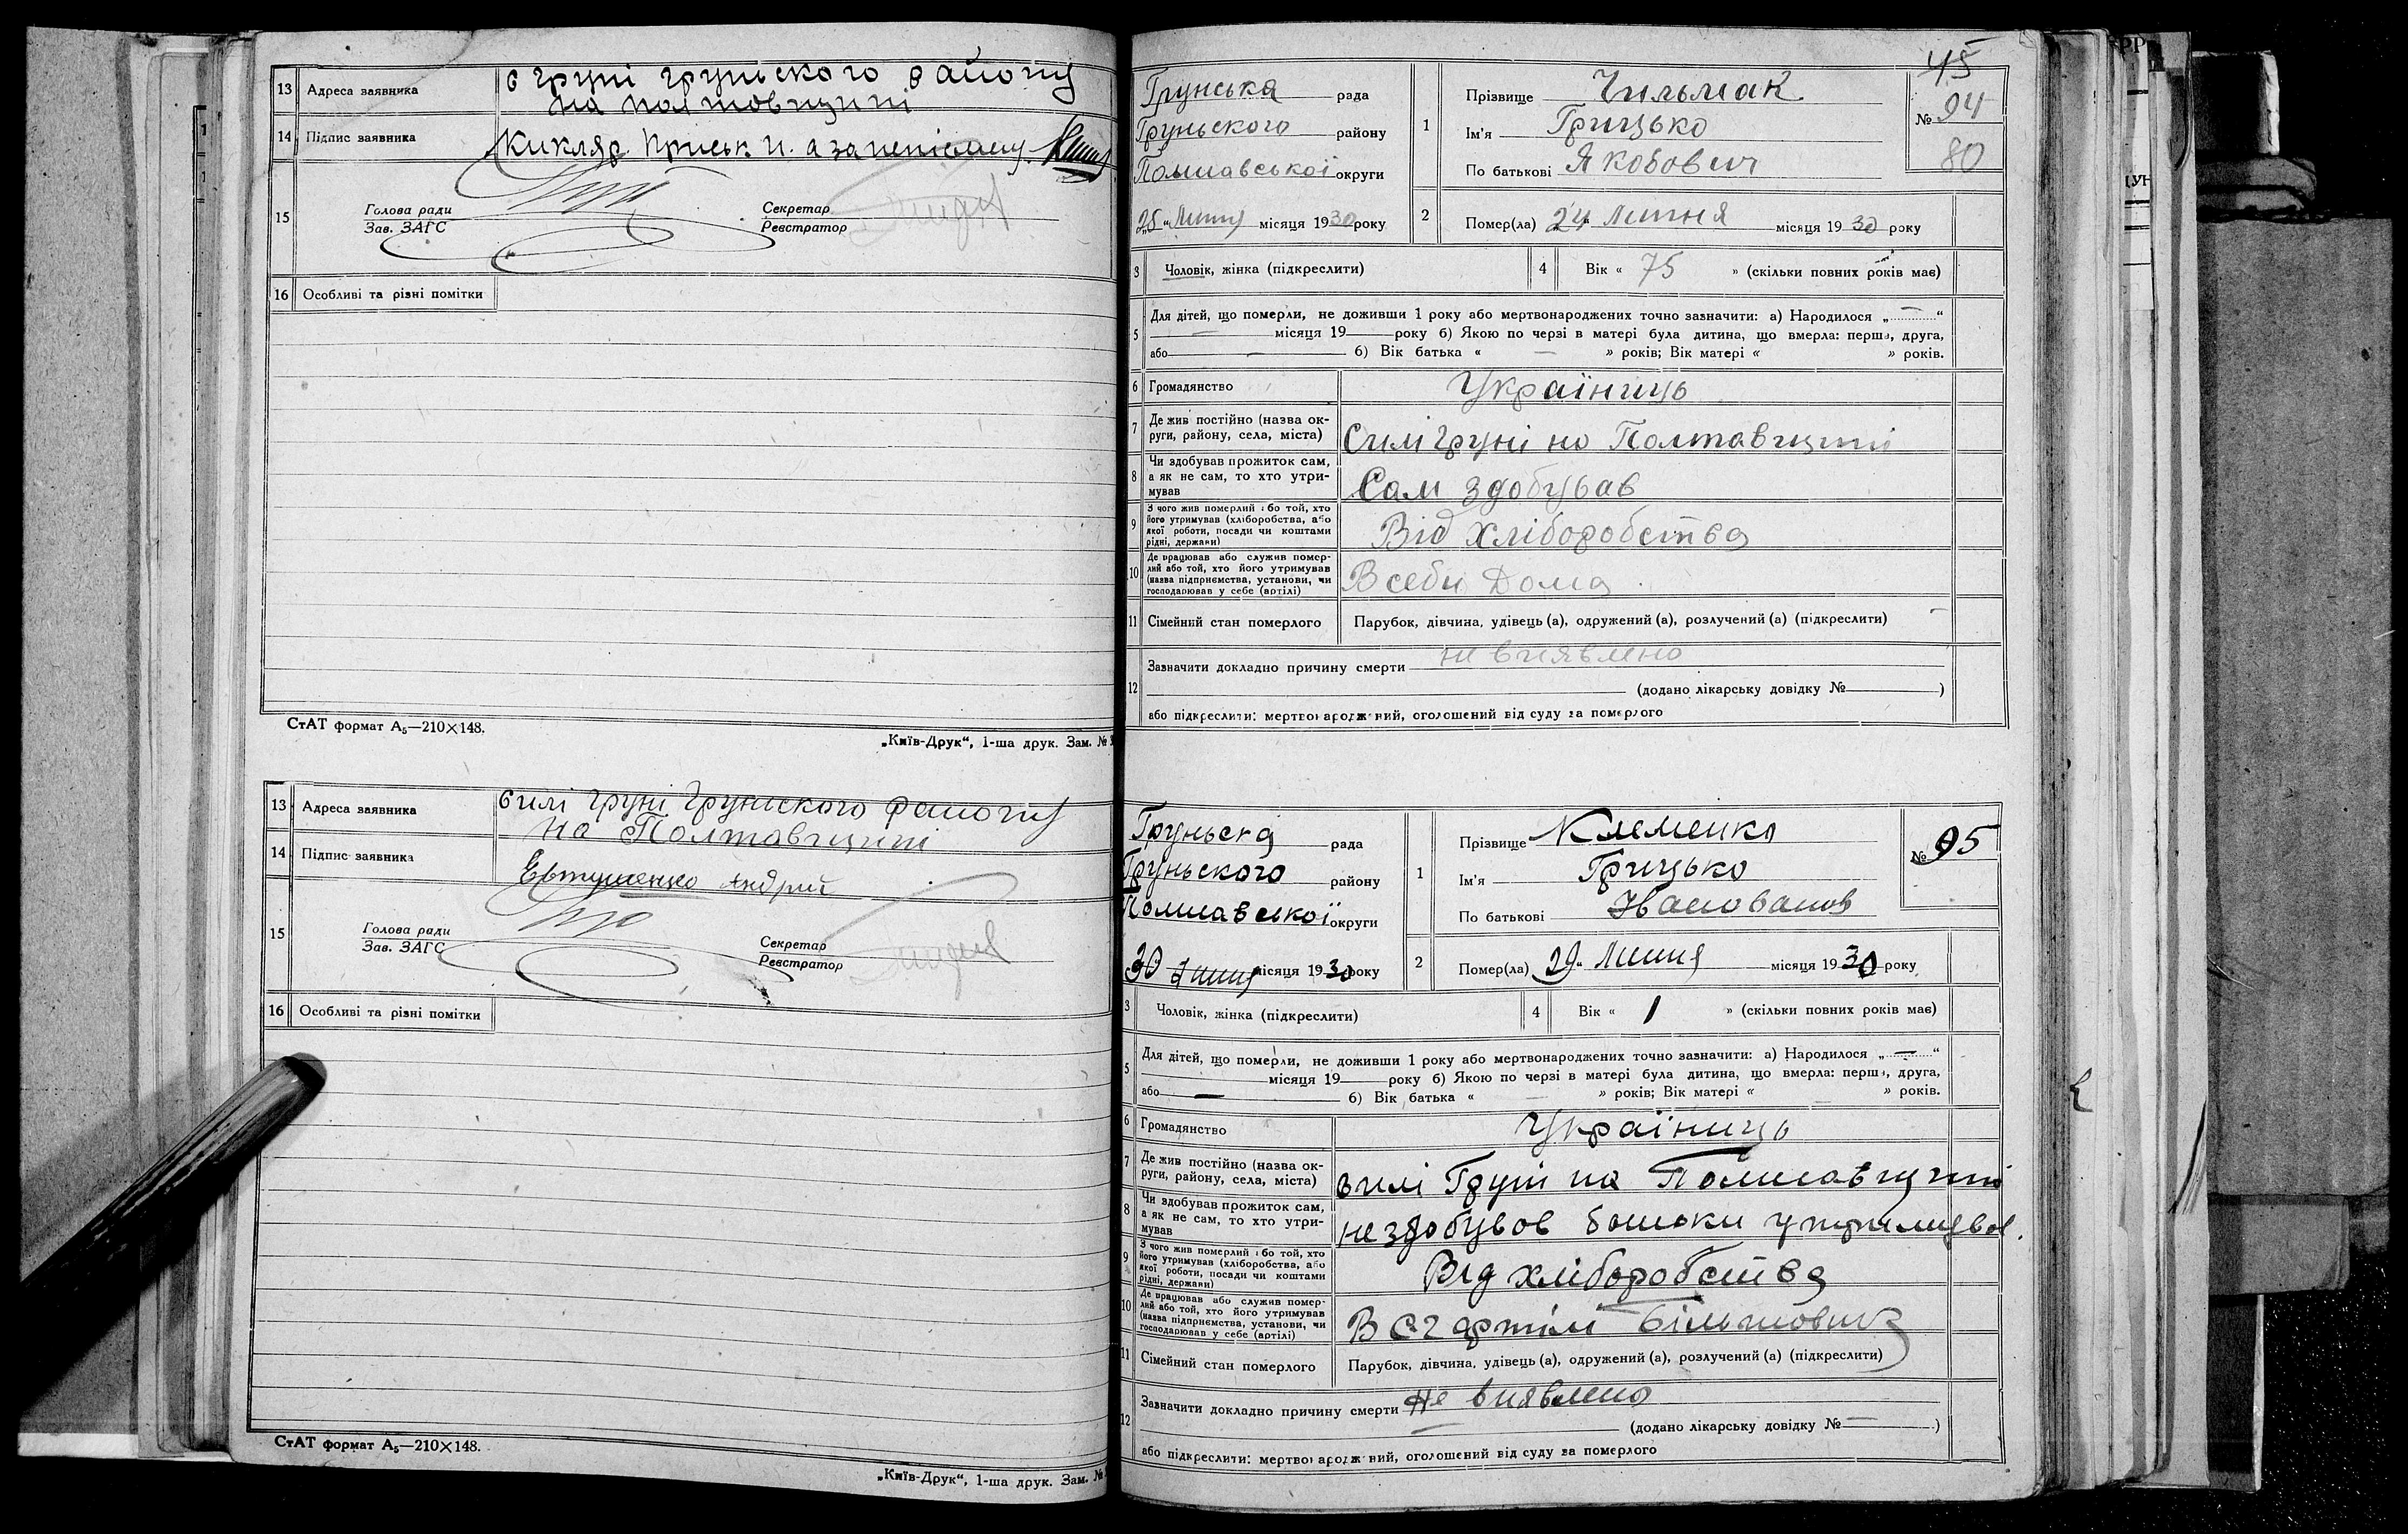 13 Адреса заявника с Груні Груньського району
на Полтовщині
14 Підпис заявника КиклярПриськ И. а записівсему
15 Голова ради
Зав. ЗАГС
Секретар
Реєстратор
16 Особливі та різні помітки
СтАТ формат А₅—210×148.
„Київ-Друк“, 1-ша друк. Зам. №
13 Адреса заявника Силі Груні Груньского району
на Полтавщині
14 Підпис заявника Евтушенко Андрій
15 Голова ради
Зав. ЗАГС
Секретар
Реєстратор
16 Особливі та різні помітки
СтАТ формат А₅—210×148.
„Київ-Друк“, 1-ша друк. Зам. №
45
Грунська рада
Груньского району
Полтавської округи
25 „ Липня місяця 1930 року
1 Прізвище Чильмак
Ім'я Грицько
По батькові Якобович
№ 94
80
2 Помер(ла) 24 „ Липня місяця 1930 року
3 Чоловік, жінка (підкреслити)
4 Вік « 75 » (скільки повних років має)
5 Для дітей, що померли, не доживши 1 року або мертвонароджених точно зазначити: а) Народилося „ — “
— місяця 19 — року б) Якою по черзі в матері була дитина, що вмерла: перша, друга,
або — б) Вік батька « — » років; Вік матері « » років.
6 Громадянство Україниць
7 Де жив постійно (назва округи, району, села, міста) Силі Груні на Полтавщині
8 Чи здобував прожиток сам, а як не сам, то хто утримував Сам здобував
9 З чого жив померлий або той, хто його утримував (хліборобства, або якої роботи, посади чи коштами рідні, держави) Від хліборобства
10 Де працював або служив померлий або той, хто його утримував (назва підприємства, установи, чи господарював у себе (артілі) В себи Дома
11 Сімейний стан померлого Парубок, дівчина, удівець (а), одружений (а), розлучений (а) (підкреслити)
12 Зазначити докладно причину смерти не виявлено
(додано лікарську довідку № )
або підкреслити: мертвонароджений, оголошений від суду за померлого
Груньска рада
Груньского району
Полтавської округи
30 Липня місяця 1930 року
1 Прізвище Клеменко
Ім'я Грицько
По батькові Ивановичов
№ 95
2 Помер(ла) 29 „ Липня місяця 1930 року
3 Чоловік, жінка (підкреслити)
4 Вік « 1 » (скільки повних років має)
5 Для дітей, що померли, не доживши 1 року або мертвонароджених точно зазначити: а) Народилося „ — “
місяця 19 року б) Якою по черзі в матері була дитина, що вмерла: перша, друга,
або — б) Вік батька « — » років; Вік матері « — » років.
6 Громадянство Україниць
7 Де жив постійно (назва округи, району, села, міста) в силі Груні на Полтавщині
8 Чи здобував прожиток сам, а як не сам, то хто утримував не здобував батьки утримував
9 З чого жив померлий або той, хто його утримував (хліборобства, або якої роботи, посади чи коштами рідні, держави) Від хліборобства
10 Де працював або служив померлий або той, хто його утримував (назва підприємства, установи, чи господарював у себе (артілі) В СГ артілі більшовик
11 Сімейний стан померлого Парубок, дівчина, удівець (а), одружений (а), розлучений (а) (підкреслити)
12 Зазначити докладно причину смерти Не виявлено
(додано лікарську довідку № — )
або підкреслити: мертвонароджений, оголошений від суду за померлого